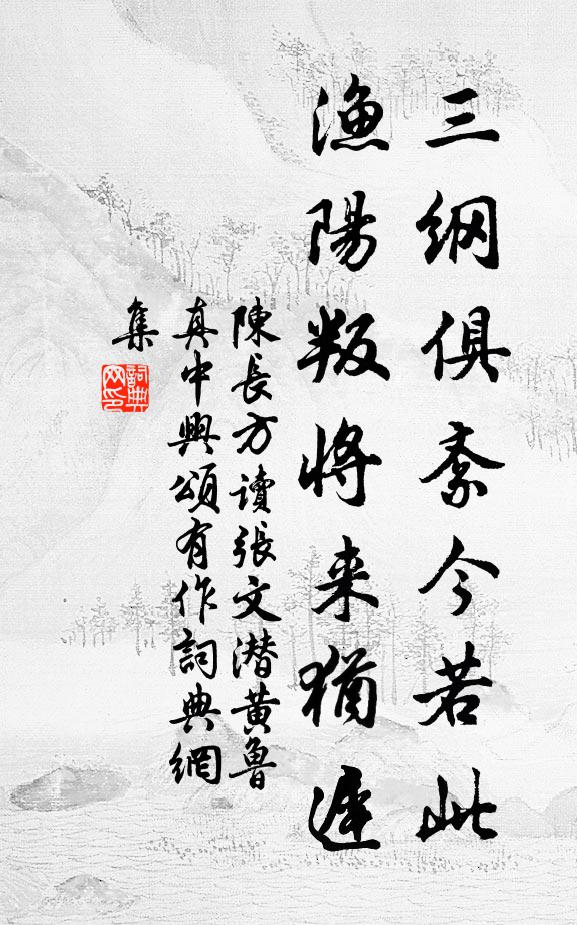 三纲俱紊今若此
漁陽叛将来猶遲
陳長方讀張文潜黄魯
真中興頌有作詞典網
集
詞典
网印